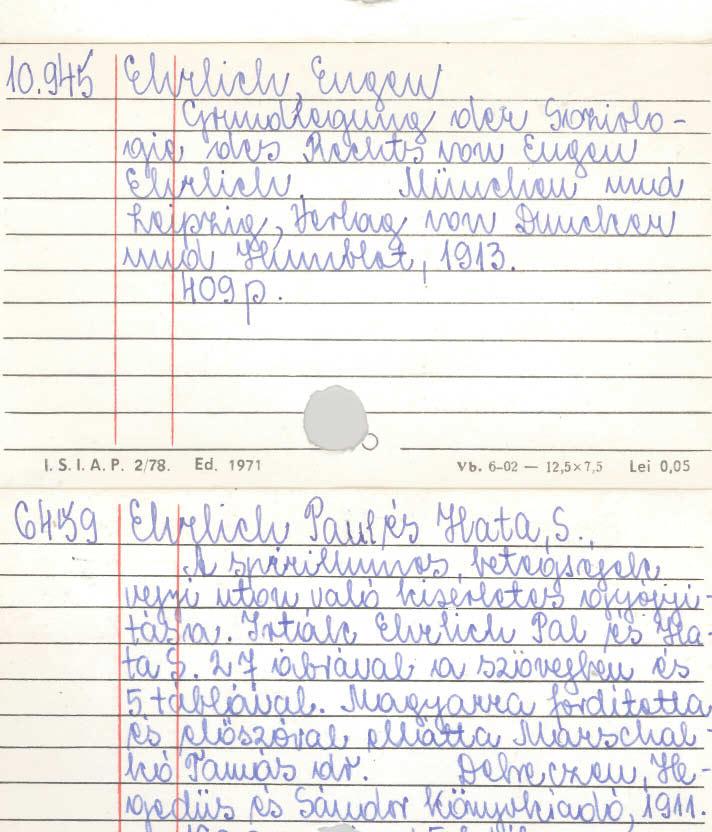 10.945 Ehrlich, Eugen
Grundlegung der Soziolo-
gie des Rechts von Eugen
Ehrlich. München und
Leipzig, Verlag von Duncker
und Humblot, 1913.
409 p.
I. S. I. A. P. 2/78. Ed. 1971 Vb. 6-02 — 12,5×7,5 Lei 0,05
6439 Ehrlich Paul és Hata, S.
A spirillumos betegségek
vegyi uton való kisérletes gyógyi-
tása. Irták Ehrlich Pál és Ha-
ta S. 27 ábrával a szövegben és
5 táblával. Magyarra forditotta
és előszóval ellátta Marschal-
kó Tamás dr. Debreczen, He-
gedüs és Sándor Könyvkiadó, 1911.